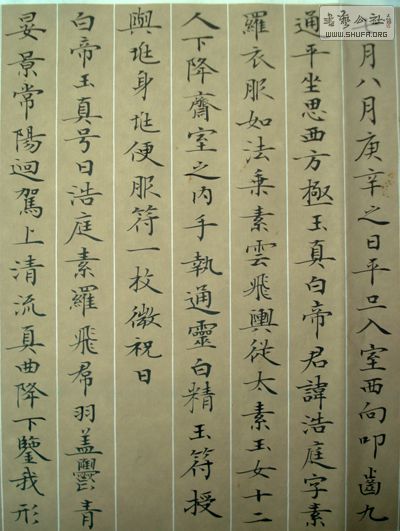 月八月庚辛之日平旦入室西向叩齒九
通平坐思西方極玉真白帝君諱浩庭字素
羅衣服如法乗素雲飛輿從太素玉女十二
人下降齋室之内手執通靈白精玉符授
與兆身兆便服符一枚微祝曰
白帝玉真号曰浩庭素羅飛帬羽盖欝青
晏景常陽迴駕上清流真曲降下鑒我形
WWW.SHUFA.ORG